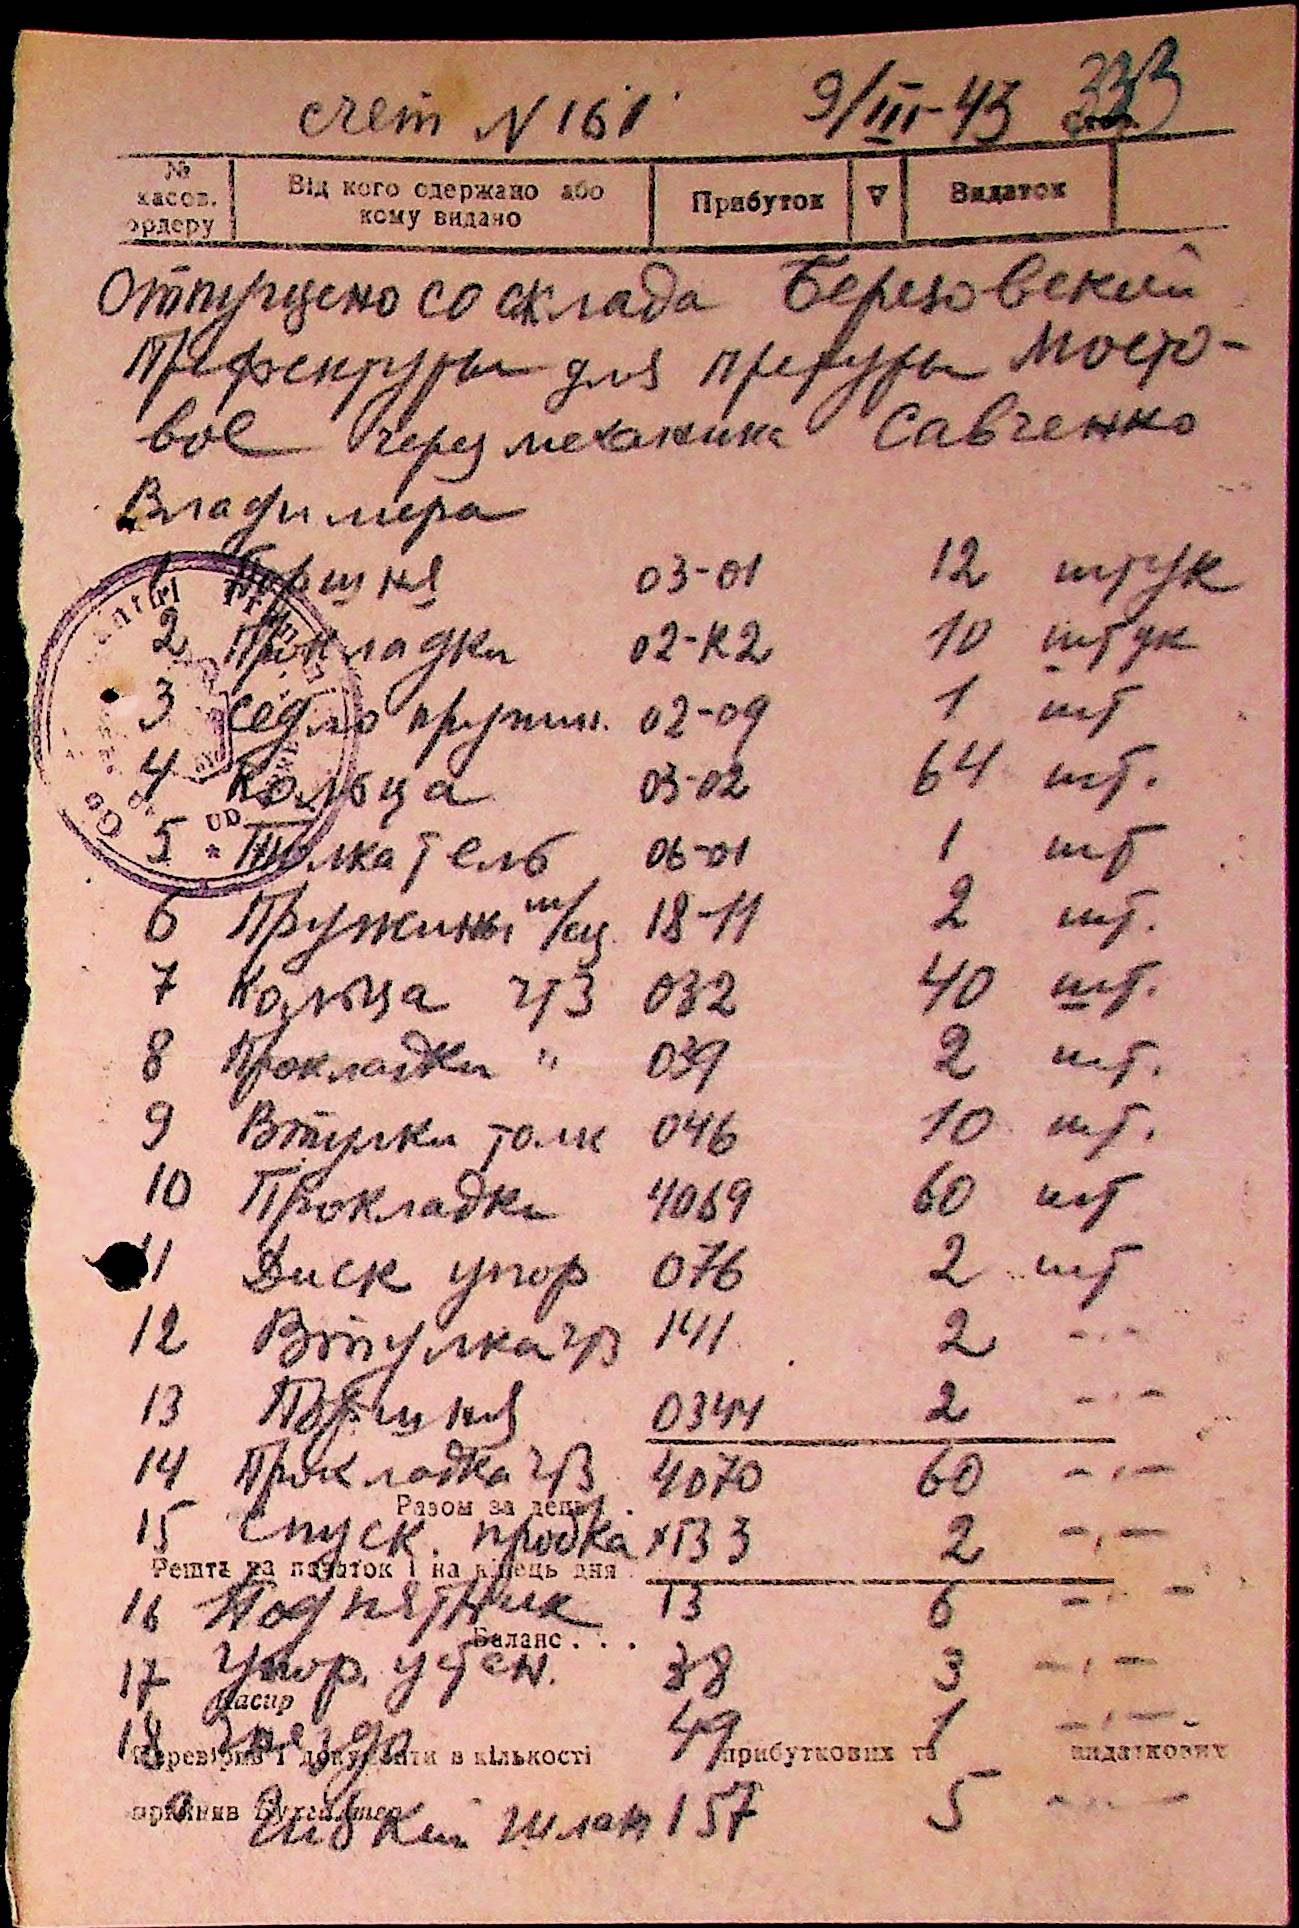 счет N 161 9/III-43 333
Стор.
№ касов. ордеру Від кого одержано або кому видано Прибуток ∇ Видаток
Отпущено со склада Березовский
Префектуры для претуры Мосто-
вое через механика Савченко
Владимера
1 Поршня 03-01 12 штук
2 Прокладки 02-К2 10 штук
3 седло пружин. 02-09 1 шт
4 Кольца 03-02 64 шт.
5 Толкатель 06-01 1 шт
6 Пружины 18-11 2 шт.
7 Кольца ЧТЗ 032 40 шт.
8 Прокладки " 039 2 шт.
9 Втулки толк 046 10 шт.
10 Прокладки 4069 60 шт
11 Диск упор 076 2 шт
12 Втулка 141 2 -"-
13 Поршня 0344 2 -"-
14 Прокладка 4070 60 -"-
Разом за день . .
15 Спуск. пробка 2 -"-
Решта на початок і на кінець дня
16 Подпятник 13 6 -"-
Баланс . . .
17 Упор. устан. 38 3 -"-
Касир
18 Гнездо 49 1 -"-
Перевірив і документи в кількості прибуткових та видаткових
прийняв Бухгалтер
Гибкий шланг 157 5 -"-